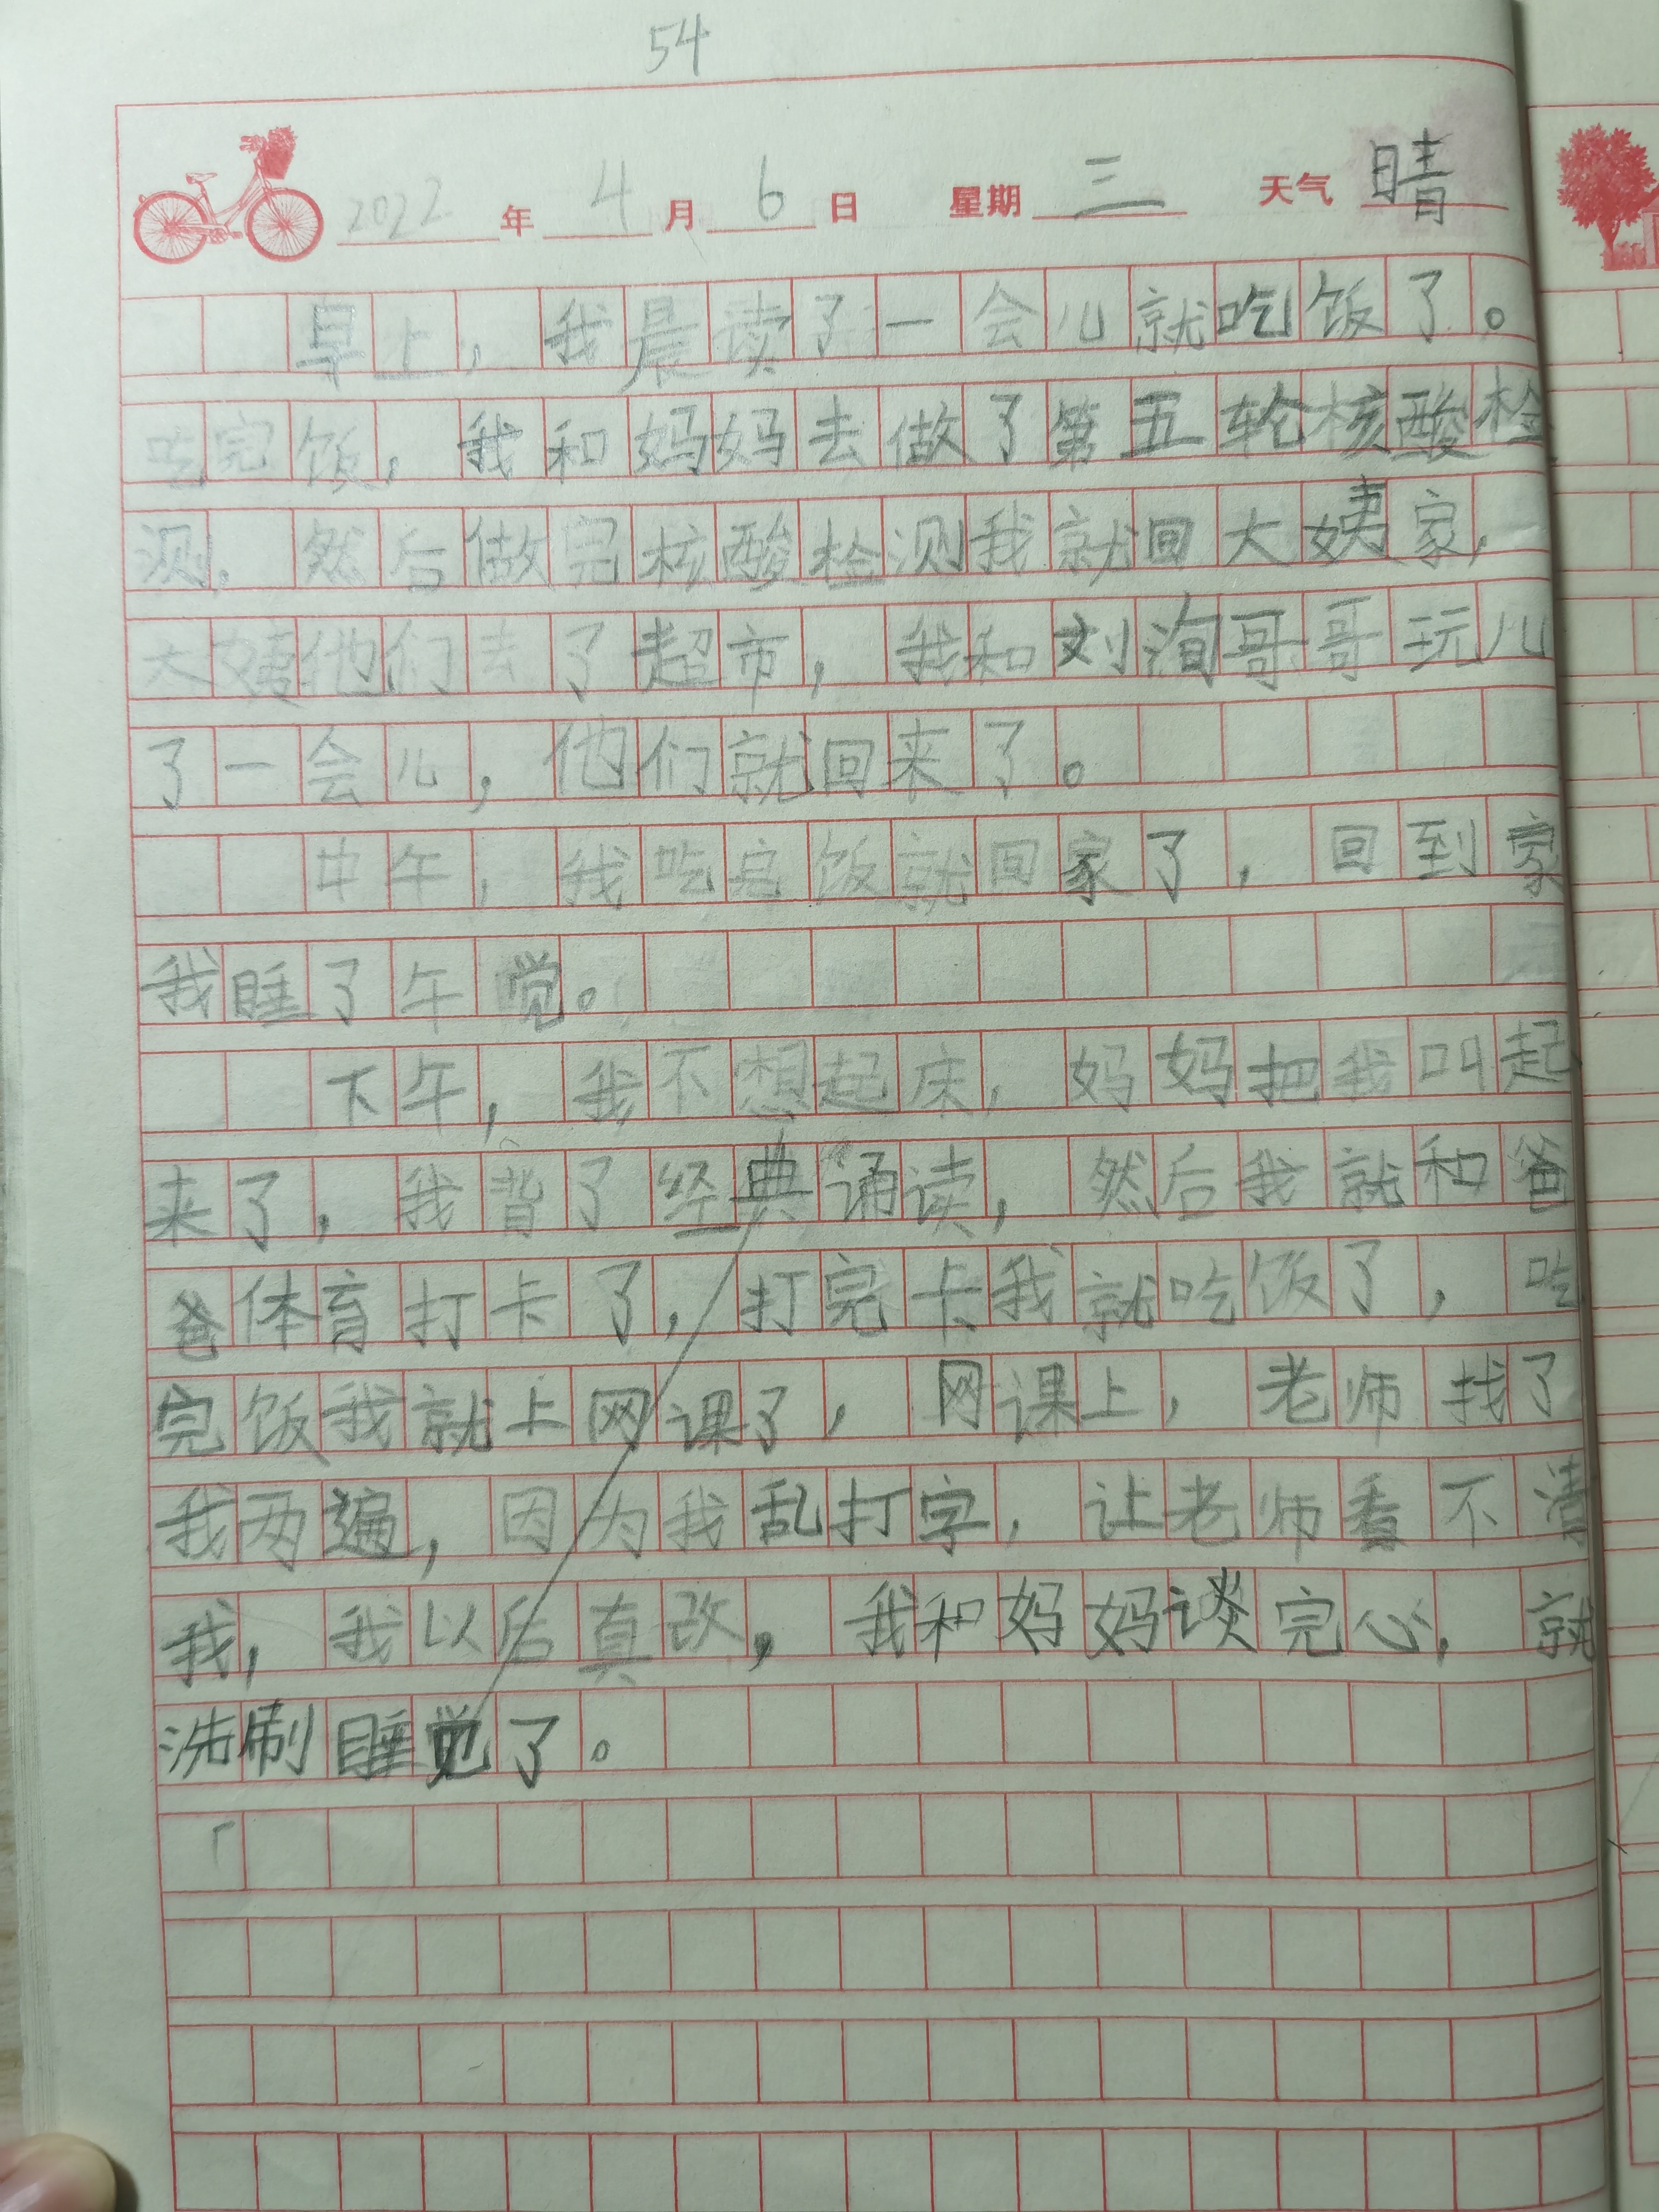 54
2022年4月6日 星期三 天气晴
早上，我晨读了一会儿就吃饭了。
吃完饭，我和妈妈去做了第五轮核酸检
测。然后做完核酸检测我就回大姨家，
大姨他们去了超市，我和刘洵哥哥玩儿
了一会儿，他们就回来了。
中午，我吃完饭就回家了，回到家
我睡了午觉。
下午，我不想起床，妈妈把我叫起
来了，我背了经典诵读，然后我就和爸
爸体育打卡了，打完卡我就吃饭了，吃
完饭我就上网课了，网课上，老师找了
我两遍，因为我乱打字，让老师看不清
我，我以后真改，我和妈妈谈完心，就
洗刷睡觉了。